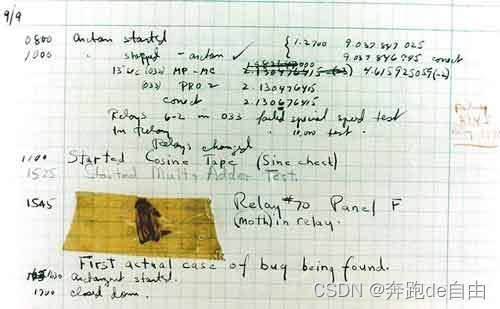 9/9
0800 Antan started { 1.2700 9.037 847 025
1000 " stopped - antan ✓ 9.037 846 795 correct
13"uc (032) MP - MC 2.130476415 4.615925059(-2)
(033) PRO 2 2.130476415
correct 2.130676415
Relays 6-2 in 033 failed special speed test
in relay " 10,000 test.
Relays changed
1100 Started Cosine Tape (Sine check)
1525 Started Multy Adder Test.
1545 Relay #70 Panel F
(moth) in relay.
First actual case of bug being found.
1630 Antangent started.
1700 closed down.
CSDN @奔跑de自由